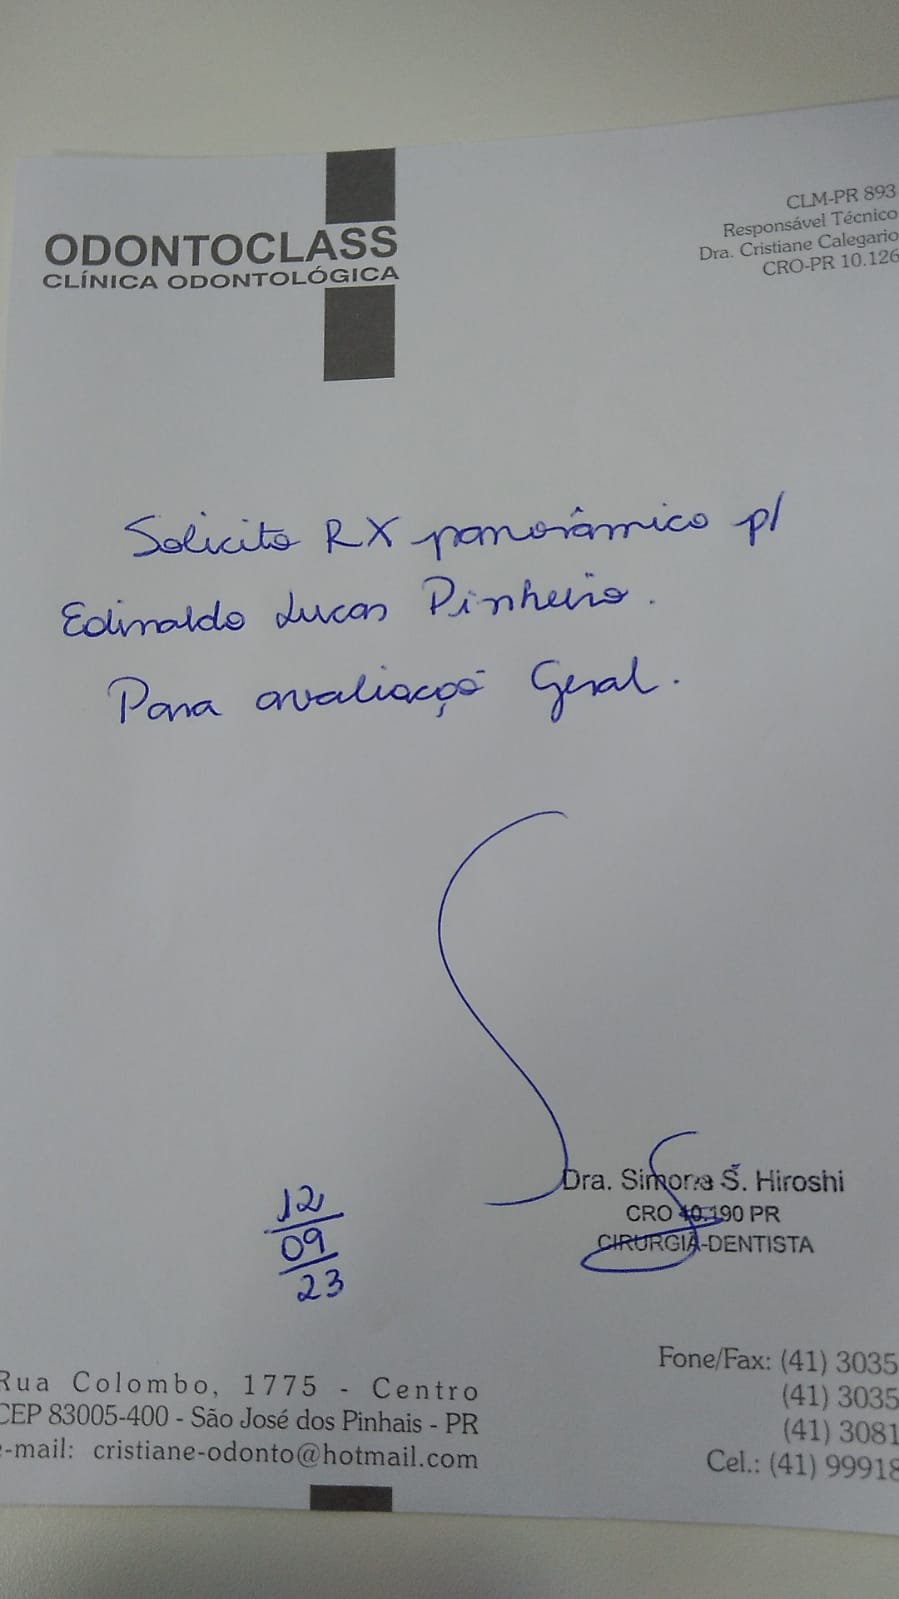 ODONTOCLASS
CLÍNICA ODONTOLÓGICA
CLM-PR 893
Responsável Técnico
Dra. Cristiane Calegario
CRO-PR 10.126
Solicito RX panorâmico p/
Edinaldo Lucas Pinheiro.
Para avaliação Geral.
Dra. Simone S. Hiroshi
CRO 10.190 PR
CIRURGIÃ-DENTISTA
12
09
23
Rua Colombo, 1775 - Centro
CEP 83005-400 - São José dos Pinhais - PR
e-mail: cristiane-odonto@hotmail.com
Fone/Fax: (41) 3035
(41) 3035
(41) 3081
Cel.: (41) 99918